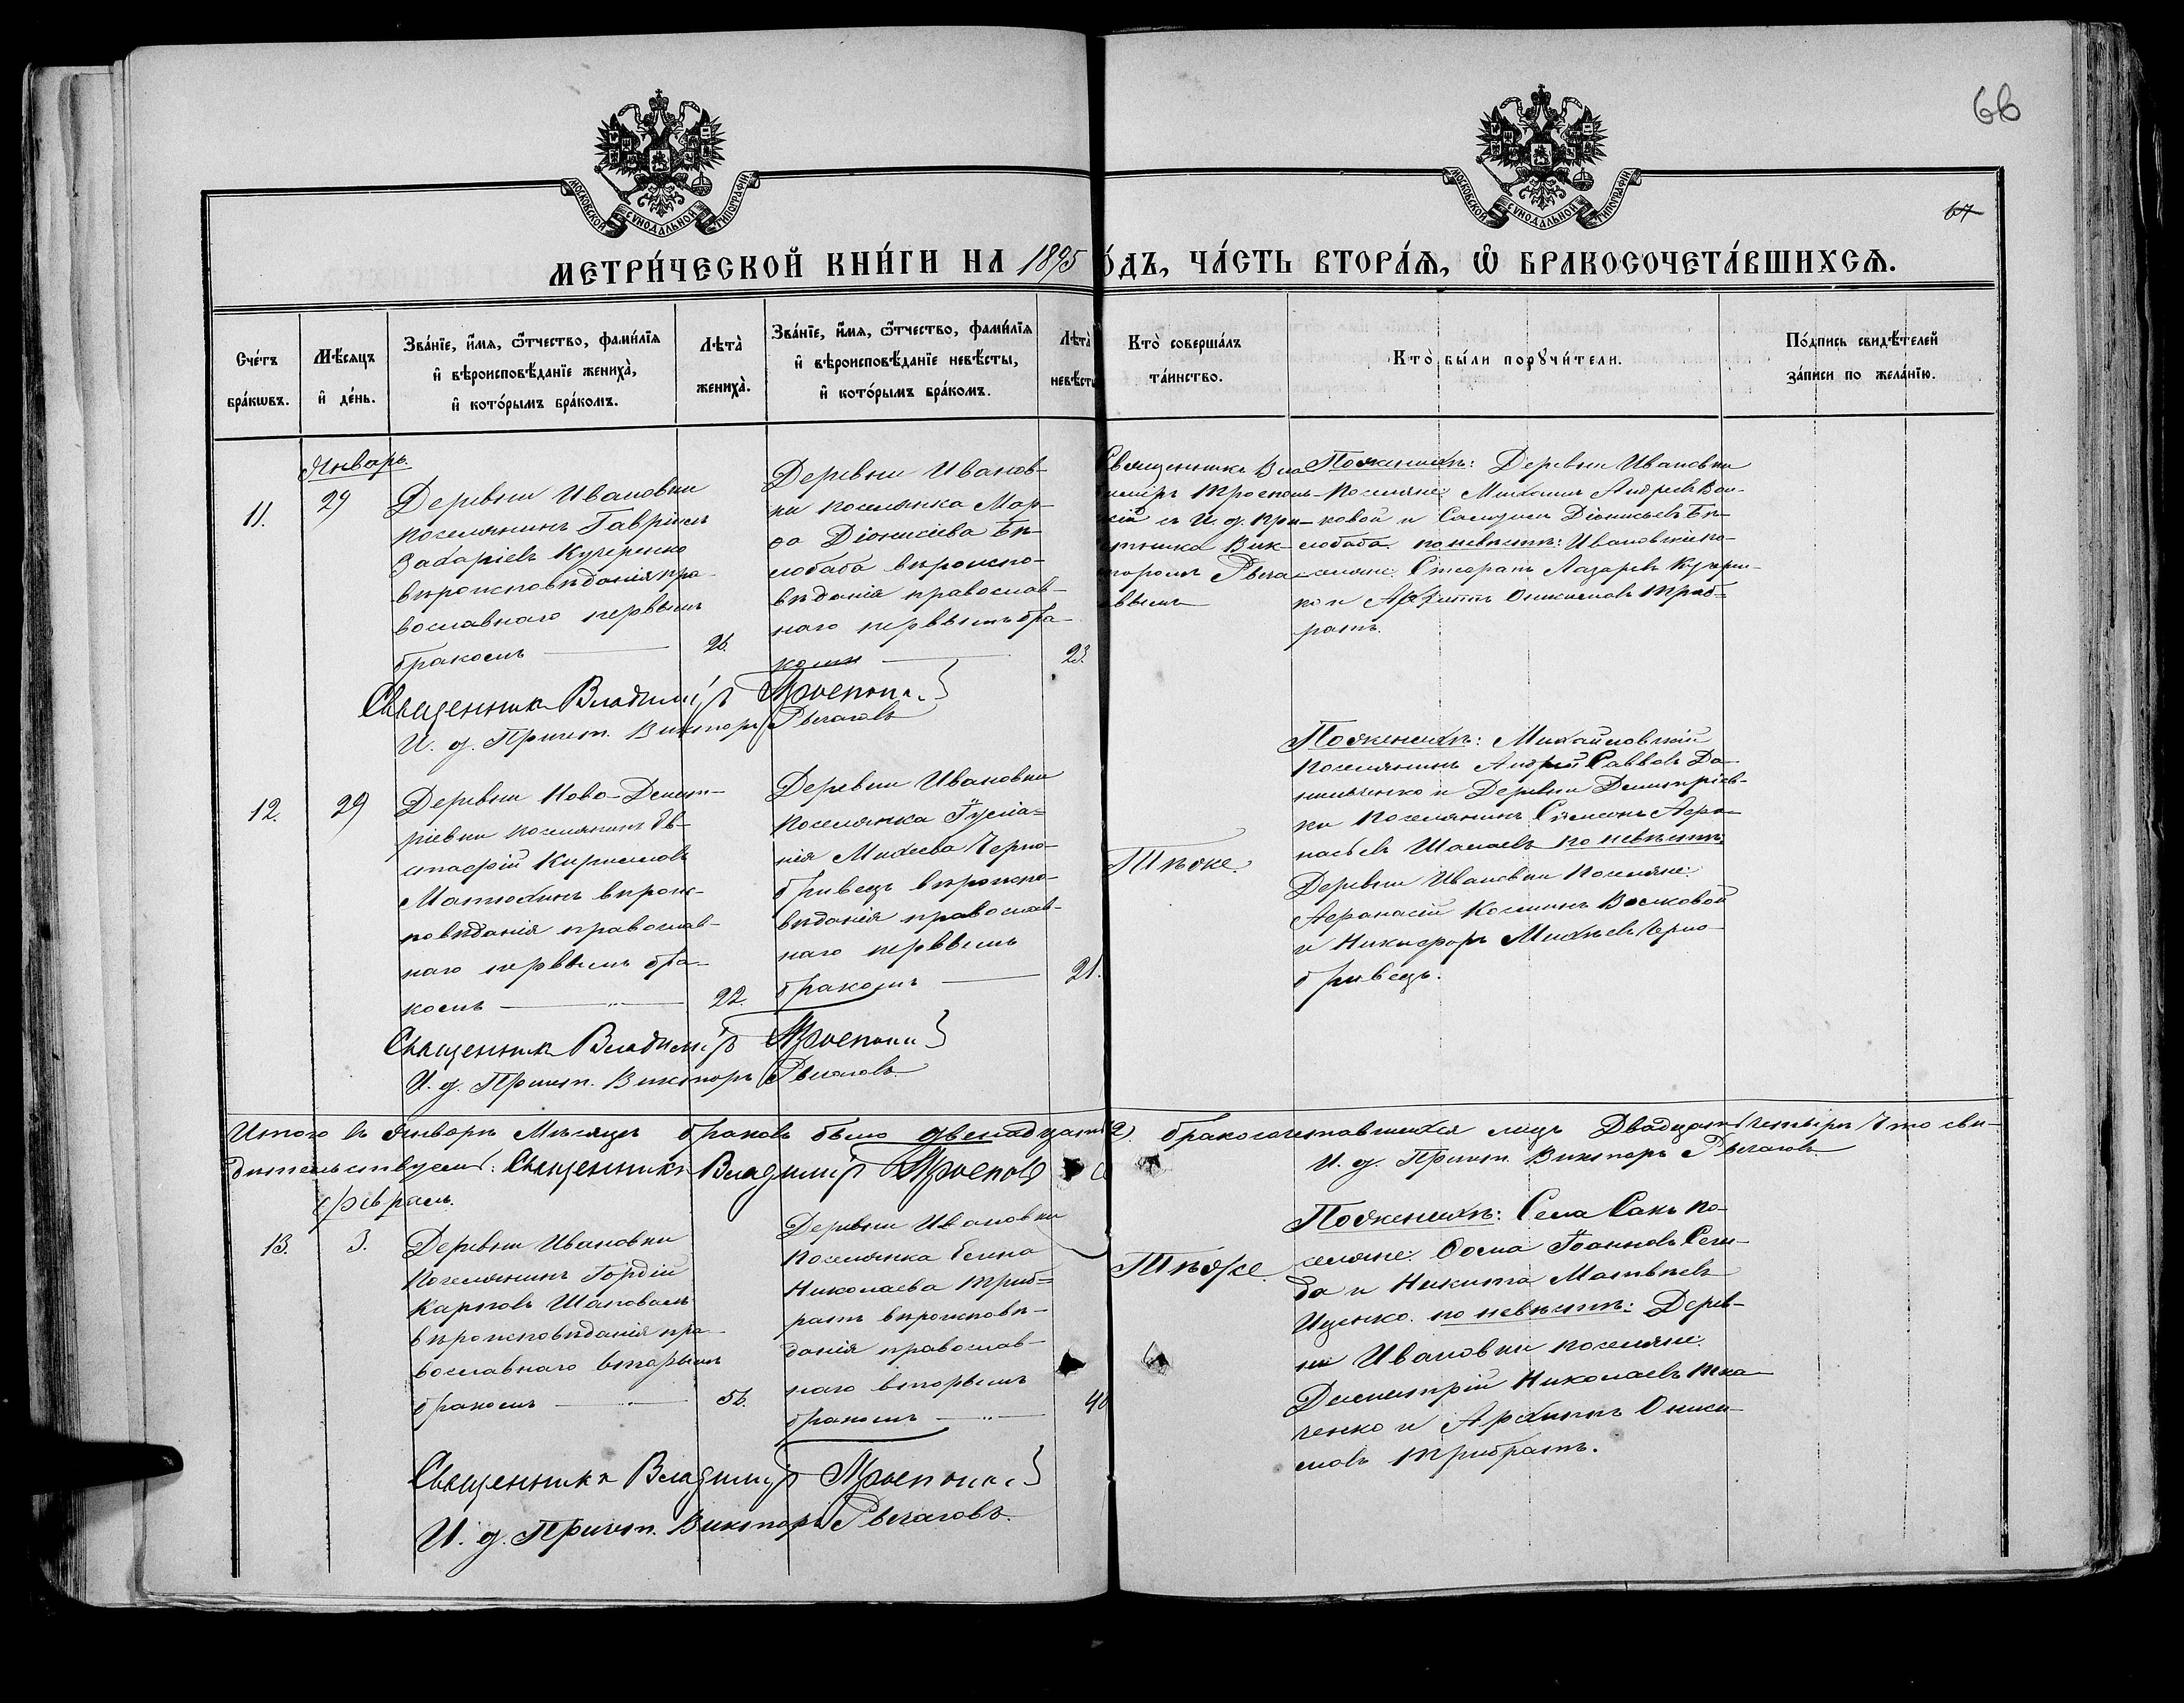 66
67
МОСКОВСКОЙ СѴНОДАЛЬНОЙ ТИПОГРАФІИ
МОСКОВСКОЙ СѴНОДАЛЬНОЙ ТИПОГРАФІИ
МЕТРИ́ЧЕСКОЙ КНИ́ГИ НА 1895 О́ДЪ, ЧА́СТЬ ВТОРА́Ѧ, Ѽ БРАКОСОЧЕТА́ВШИХСѦ.
Сче́тъ бра́кѡвъ.
Мѣ́сѧцъ и҆ де́нь.
Зва́нїе, и҆́мѧ, ѻ҆́тчество, фами́лїѧ
и҆ вѣроисповѣ́данїе жениха̀,
и҆ кото́рымъ бра́комъ.
Лѣта̀
жениха̀.
Зва́нїе, и҆́мѧ, ѻ҆́тчество, фами́лїѧ
и҆ вѣроисповѣ́данїе невѣ́сты,
и҆ кото́рымъ бра́комъ.
Лѣта̀
невѣ́сты
Кто̀ соверша́лъ
та́инство.
Кто̀ бы́ли порꙋчи́тели.
По́дпись свидѣ́телей
за́писи по жела́нїю.
Январь.
11.
29
Деревни Ивановки
поселянинъ Гавріилъ
Захаріевъ Кучеренко
вѣроисповѣданія пра-
вославнаго первымъ
бракомъ
26.
Деревни Иванов-
ки поселянка Мар-
фа Діонисіева Бѣ-
лобаба вѣроиспо-
вѣданія православ-
наго первымъ бра-
комъ
23.
Священникъ Вла
диміръ Троепольс-
кій съ И. д. при-
четника Вик-
торомъ Рыча-
вымъ
По женихѣ: Деревни Ивановки
поселяне: Михаилъ Андреевъ Вол-
ковой и Самуилъ Діонисьевъ Бѣ-
лобаба. по невѣстѣ: Ивановки по-
селяне: Стефанъ Лазаревъ Кучерен-
ко и Архиппъ Онисимовъ Триб-
ратъ.
Священникъ Владиміръ
И. д. Причетн. Викторъ Рычаговъ
12.
29
Деревни Ново-Димит-
ріевки поселянинъ Ев-
стафій Кирилловъ
Матюхинъ вѣроис-
повѣданія православ-
наго первымъ бра-
комъ
22.
Деревни Ивановки
поселянка Іуліа-
нія Михеева Черно-
бривецъ вѣроиспо-
вѣданія православ-
наго первымъ
бракомъ
21.
Тѣже.
По женихѣ: Михайловскій
поселянинъ Андрей Саввовъ Да-
нильченко и Деревни Димитріев-
ки поселянинъ Симеонъ Афа-
насьевъ Шамаевъ по невѣстѣ:
Деревни Ивановки поселяне:
Афанасій Косминъ Волковой
и Никифоръ Михѣевъ Черно-
бривецъ.
Священникъ Владиміръ
И. д. Причетн. Викторъ Рычаговъ
Итого въ Январѣ Мѣсяцѣ браковъ было двенадцать 12. бракосочетавшихся лицъ Двадцать Четыре Что сви-
дѣтельствуемъ: Священникъ Владиміръ
И. д. Причетн. Викторъ Рычаговъ
Февраль.
13.
3.
Деревни Ивановки
поселянинъ Гордій
Карповъ Шаповалъ
вѣроисповѣданія пра-
вославнаго вторымъ
бракомъ
56.
Деревни Ивановки
поселянка Елена
Николаева Триб-
ратъ вѣроисповѣ-
данія православ-
наго вторымъ
бракомъ
40
Тѣже.
По женихѣ: Села Сакъ по-
селяне: Фома Іоанновъ Сегe-
да и Никита Матвѣевъ
Ищенко. по невѣстѣ: Дерев-
ни Ивановки поселяне:
Димитрій Николаевъ Тка-
ченко и Архиппъ Ониси-
мовъ Трибратъ.
Священникъ Владиміръ
И. д. Причетн. Викторъ Рычаговъ.